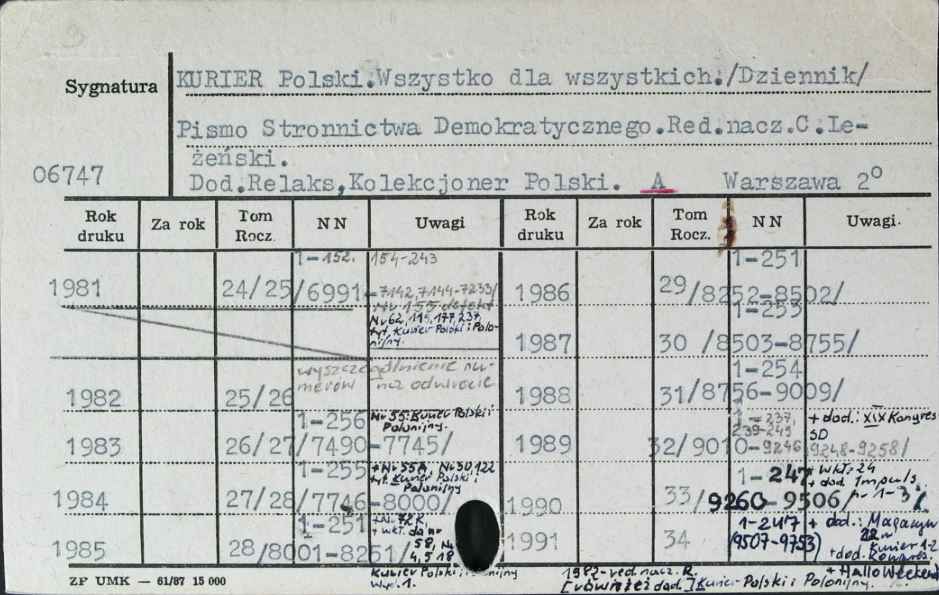 Sygnatura
KURIER Polski.Wszystko dla wszystkich./Dziennik/
Pismo Stronnictwa Demokratycznego.Red.nacz.C.Le-
żeński.
06747
Dod.Relaks,Kolekcjoner Polski. A Warszawa 2°
Rok druku Za rok Tom Rocz. NN Uwagi Rok druku Za rok Tom Rocz. NN Uwagi.
1-152. 154-243
1981 24/25 /6991-7142,7144-7233/
Nr 155 defekt
Nr 62, 115, 177, 237
tyt. Kurier Polski i Polo-
nijny.
1-251
1986 29 /8252-8502/
1-253
1987 30 /8503-8755/
wyszczególnienie nu-
merów na odwrocie
1982 25/26
1-254
1988 31/8756-9009/
1-256 Nr 55: Kurier Polski i
Polonijny.
1983 26/27 /7490-7745/
1-237, + dod.: XIX Kongres
239-249 SD
1989 32/9010-9246 9248-9258/
1-255 + Nr 55A, Nr 50,122
tyt. Kurier Polski i
Polonijny
1984 27/28 /7746-8000/
1-247 + wkł. 24
+ dod. Impuls
1990 33 /9260-9506 nr 1-3
1-251 + Nr 72 A,
+ wkł. do nr
58, Nr
4,5,18
1985 28 /8001-8251/
Kurier Polski i Polonijny
1-247 + dod.: Magazyn
1991 34 (9507-9753)
+ dod. Kurier 1-2
+ Hallo Weekend
ZP UMK — 61/87 15 000
1982-red.nacz. R.
[również dod.] Kurier Polski i Polonijny.